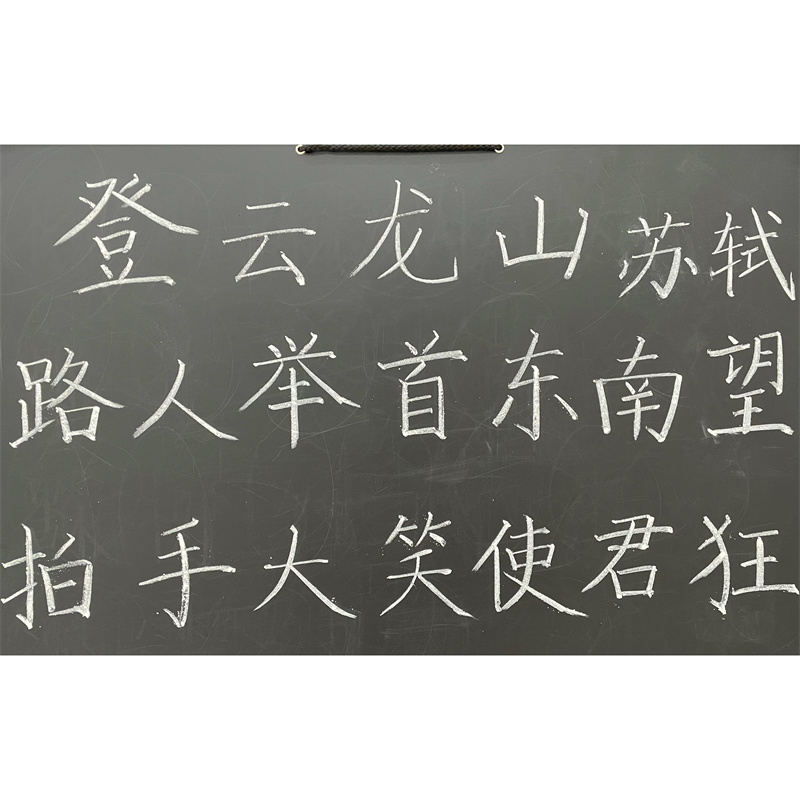 登云龙山 苏轼
路人举首东南望
拍手大笑使君狂